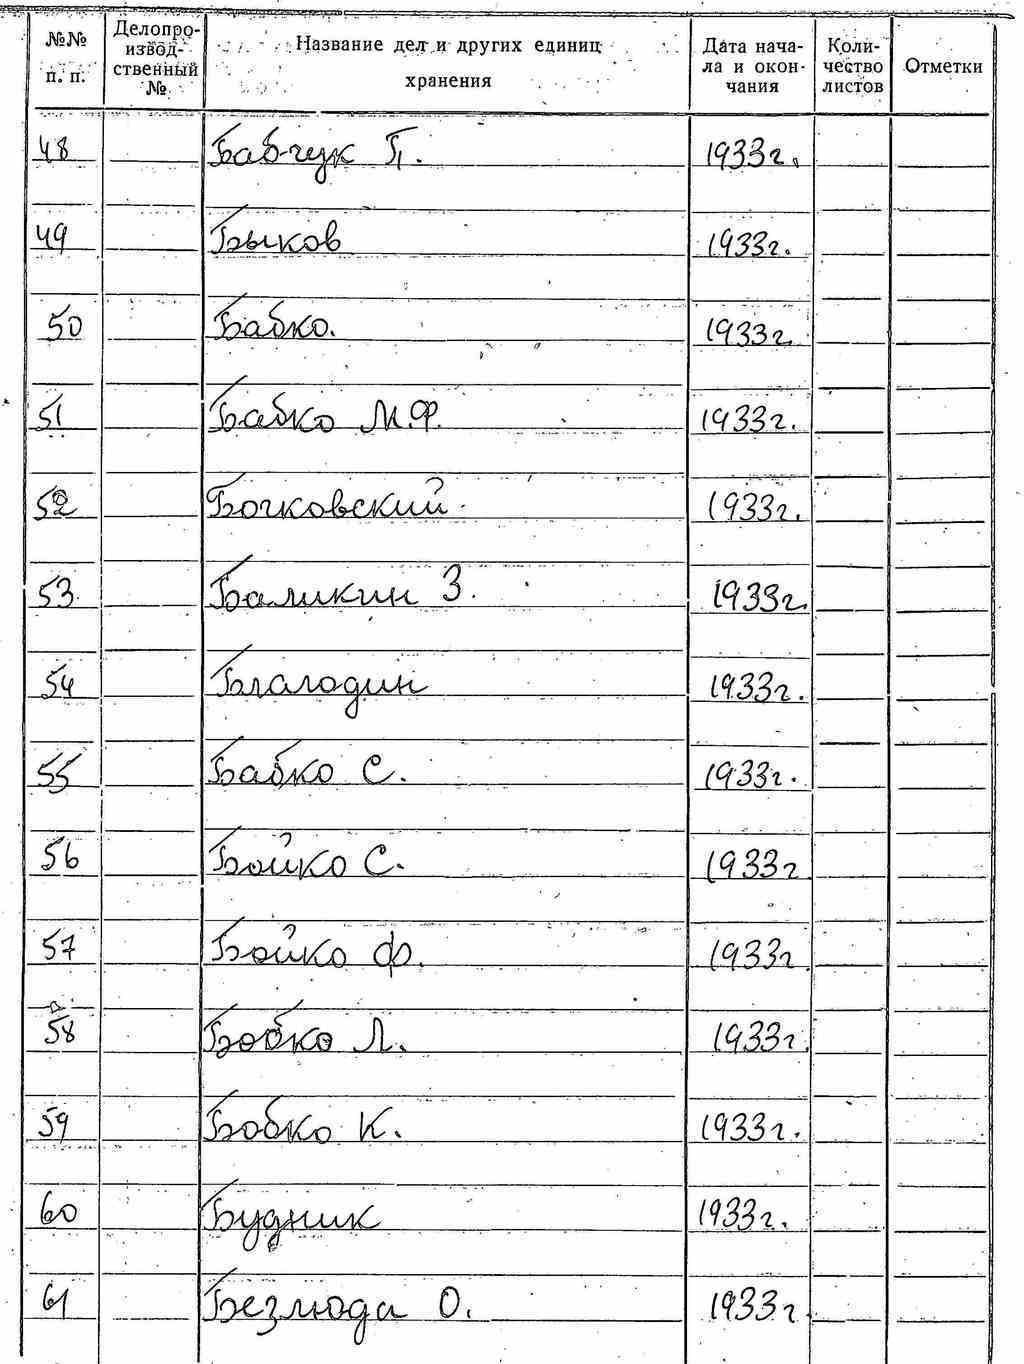 №№ п. п. Делопроизводственный № Название дел и других единиц хранения Дата начала и окончания Количество листов Отметки
48 Бабчук П. 1933г.
49 Быков 1933г.
50 Бабко. 1933г.
51 Бабко М.Ф. 1933г.
52 Бочковский 1933г.
53 Баликин З. 1933г.
54 Благодин 1933г.
55 Бабко С. 1933г.
56 Бойко С. 1933г
57 Бойко Ф. 1933г
58 Бобко Л. 1933г.
59 Бобко К. 1933г.
60 Будник 1933г.
61 Безлюда О. 1933г